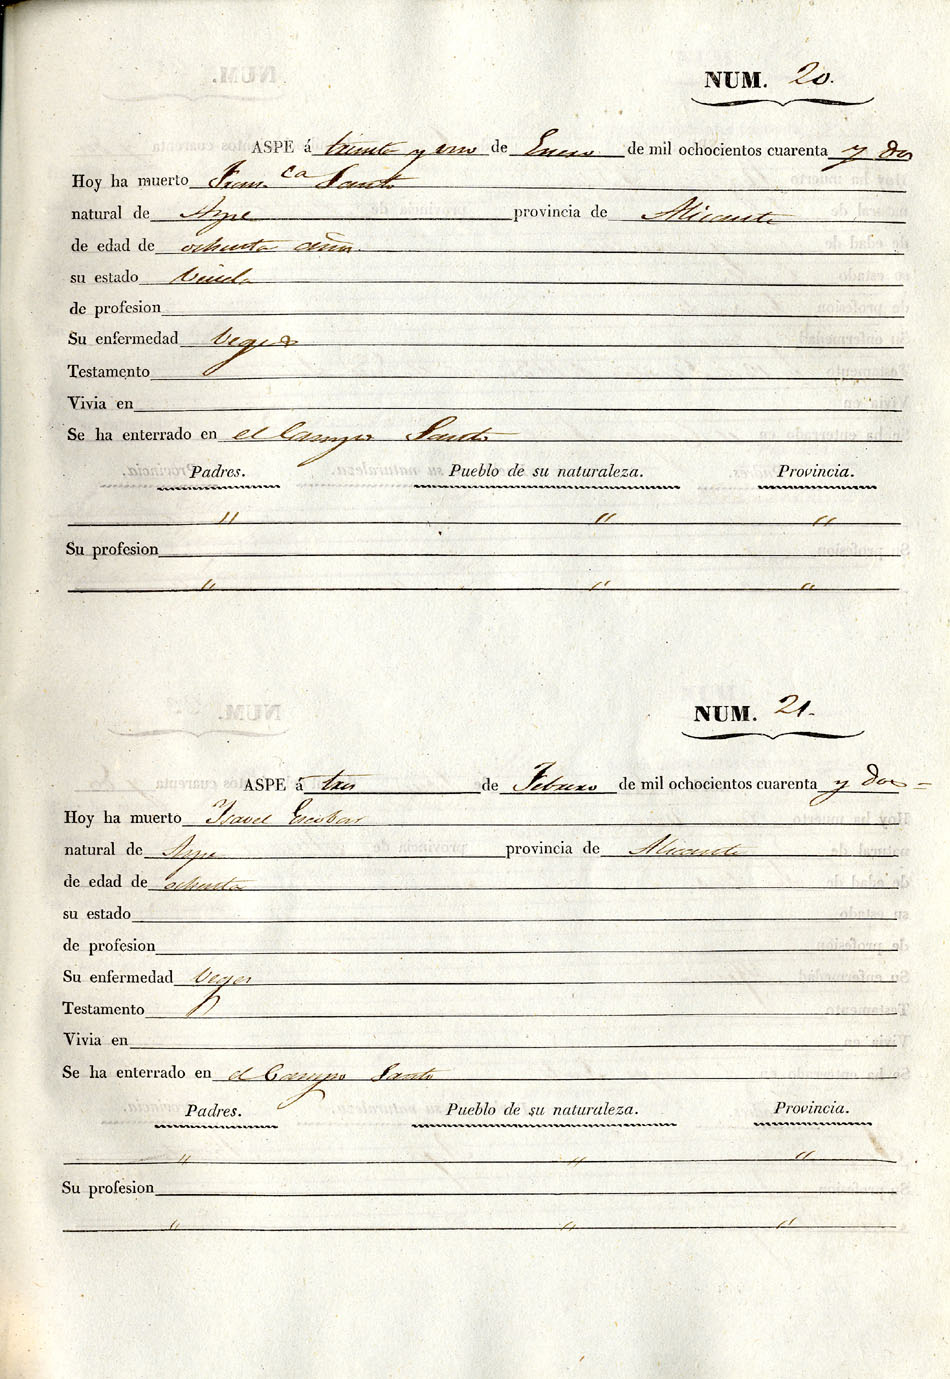 NUM. 20.
ASPE á treinta y uno de Enero de mil ochocientos cuarenta y dos
Hoy ha muerto Fran.ca Santo
natural de Aspe provincia de Alicante
de edad de ochenta años
su estado Viuda
de profesion
Su enfermedad Veges
Testamento
Vivia en
Se ha enterrado en el Campo Santo
Padres. Pueblo de su naturaleza. Provincia.
" " "
Su profesion
" " "
NUM. 21.
ASPE á tres de Febrero de mil ochocientos cuarenta y dos=
Hoy ha muerto Isavel Escobar
natural de Aspe provincia de Alicante
de edad de ochenta
su estado
de profesion
Su enfermedad Veges
Testamento
Vivia en
Se ha enterrado en el Campo Santo
Padres. Pueblo de su naturaleza. Provincia.
" " "
Su profesion
" " "